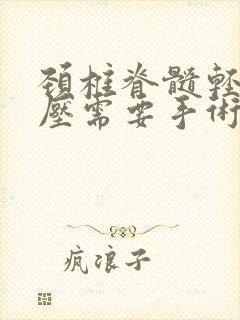 頸椎脊髓輕
壓需要手術
瘋浪子